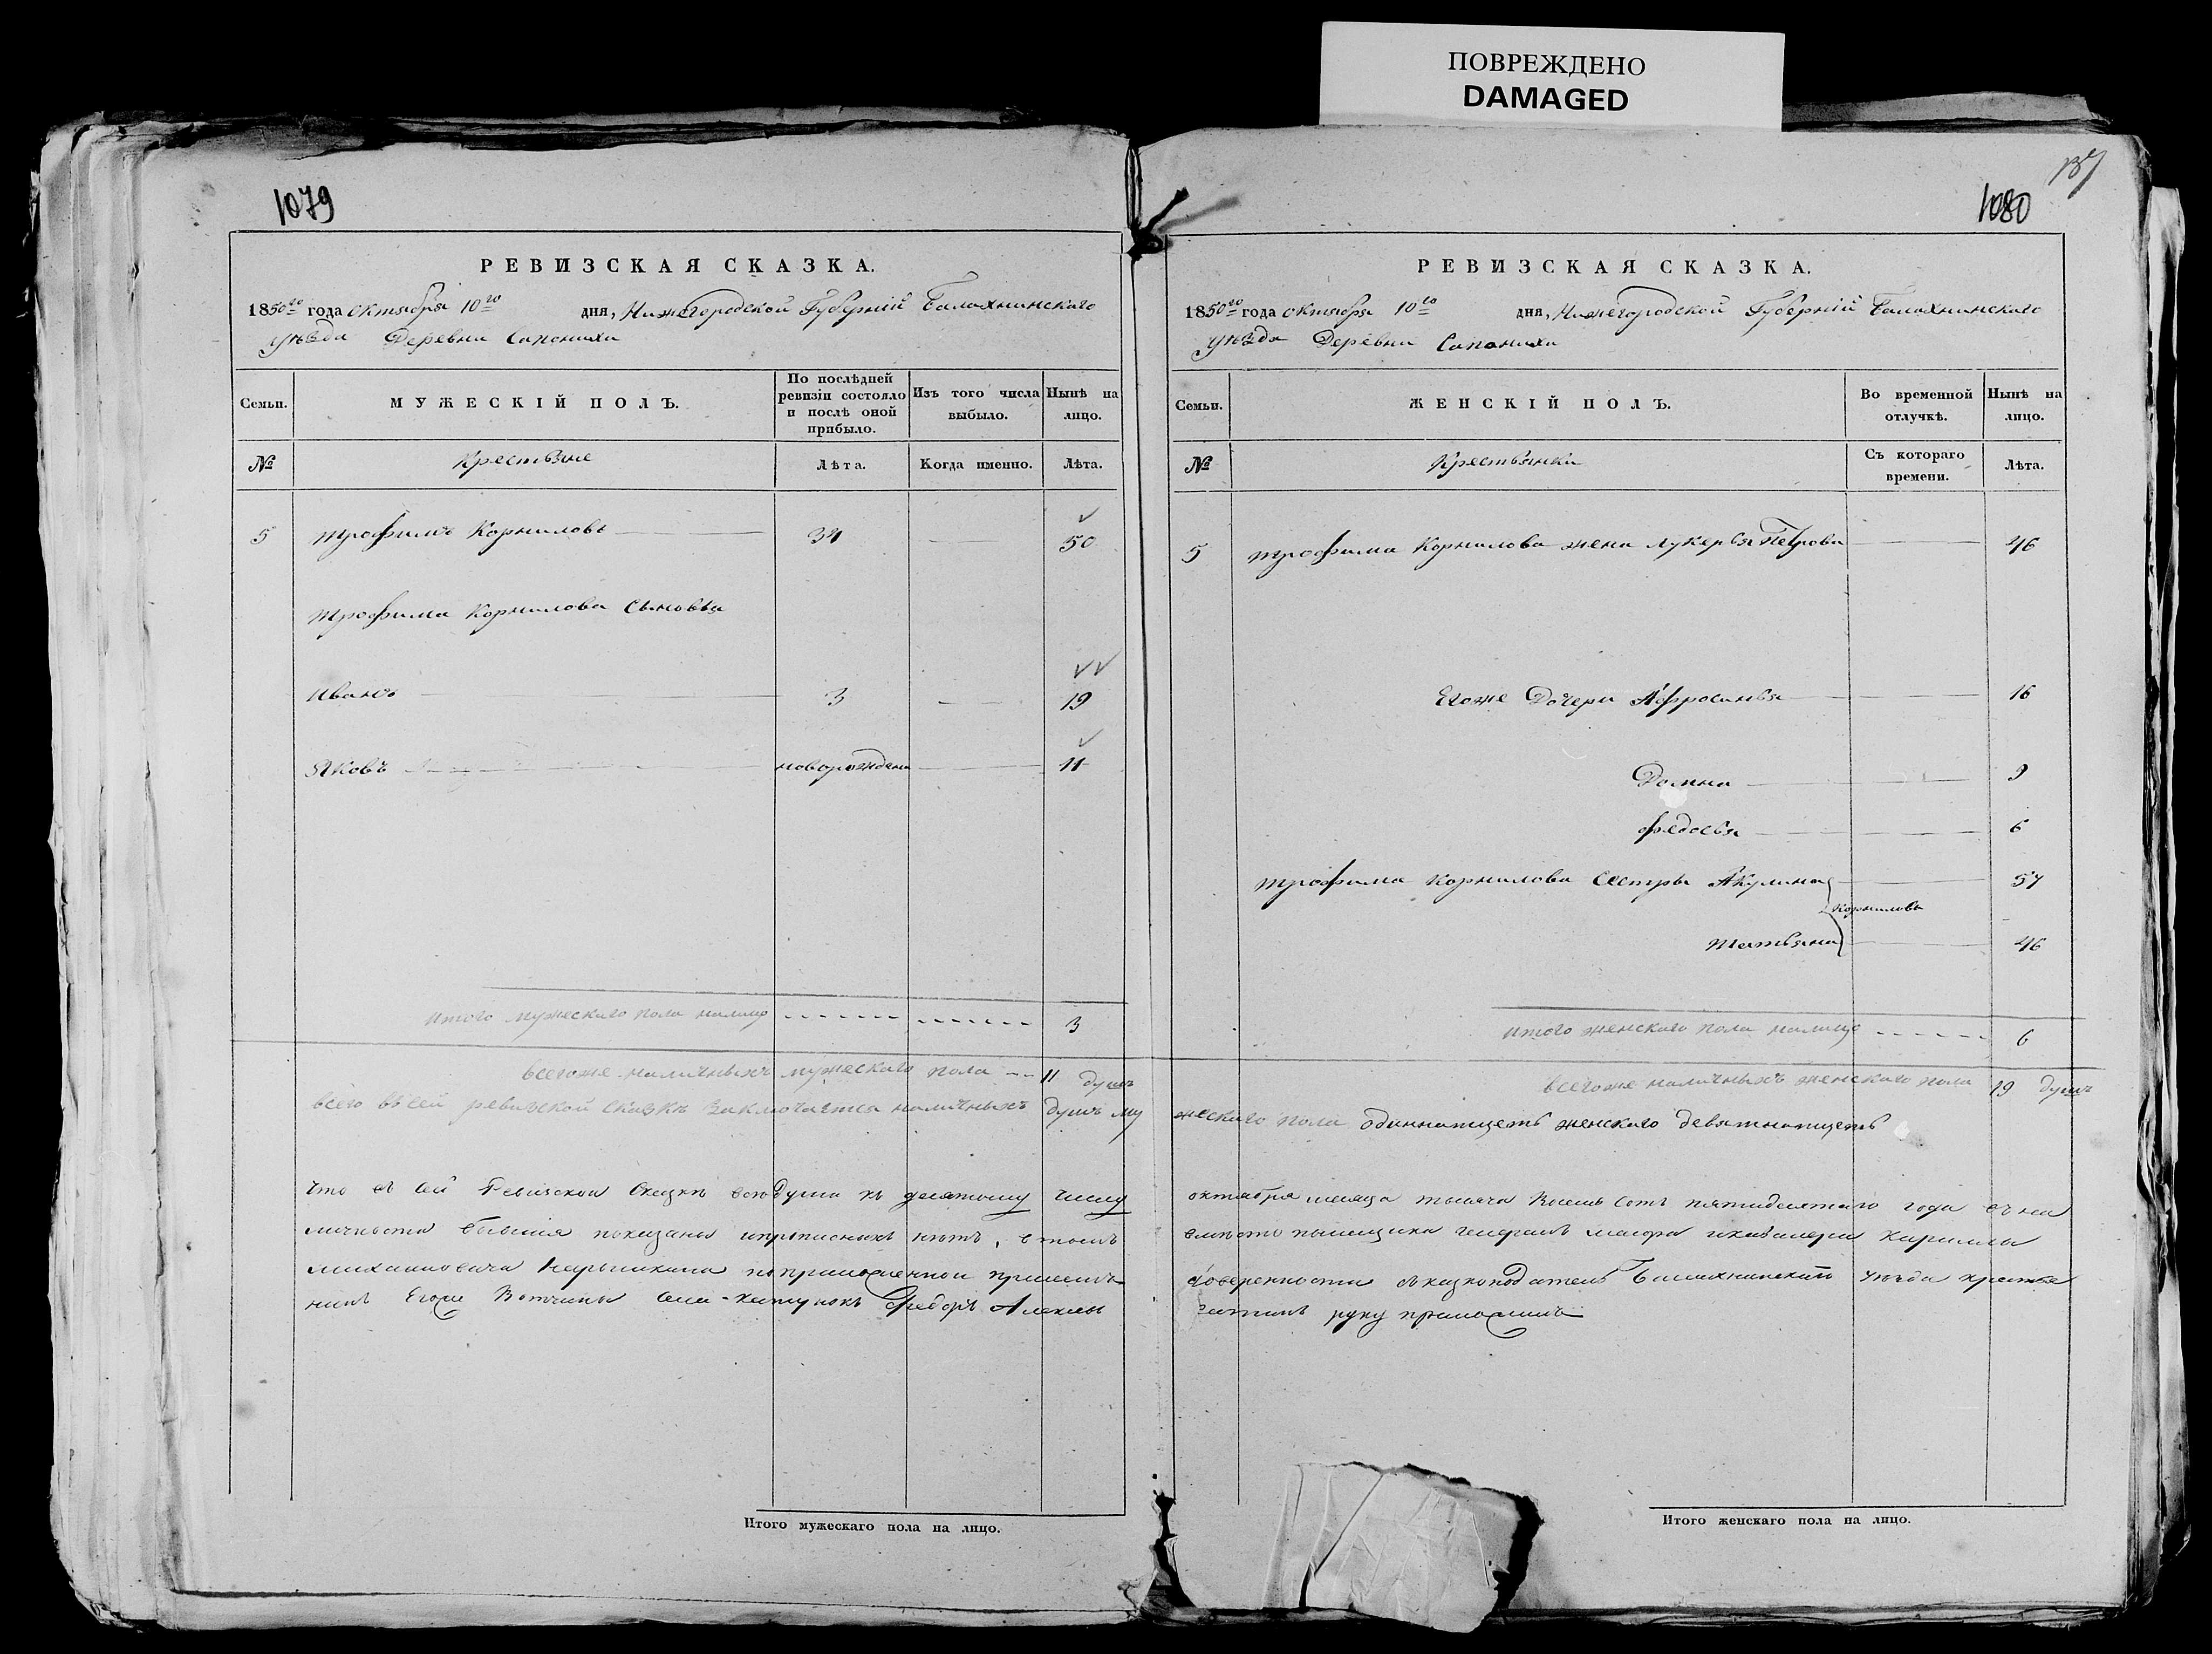 ПОВРЕЖДЕНО
DAMAGED
1079
РЕВИЗСКАЯ СКАЗКА.
1850го года октября 10го дня, Нижегородской Губерніи Балахнинскаго
уѣзда Деревни Сапонихи
Семьи.
МУЖЕСКІЙ ПОЛЪ.
По послѣдней ревизіи состояло и послѣ оной прибыло.
Изъ того числа выбыло.
Нынѣ на лицо.
№
Крестьяне
Лѣта.
Когда именно.
Лѣта.
5 Трофимъ Корниловъ 34 50
Трофима Корнилова Сыновья
Иванъ 3 19
Яковъ новорожденъ 11
Итого мужескаго пола налицо 3
Всегоже наличныхъ мужескаго пола 11 душъ
всего въ сей ревизкой сказкѣ заключается наличныхъ душъ му
Что въ сей Ревизской Сказкѣ всѣ души къ десятому числу
личности бывшия показаны и прописныхъ нѣтъ, в томъ
Михайловича Нарышкина по приложенной при семъ
нинъ Егоже Вотчины Села Катунокъ Федоръ Алексѣ
Итого мужескаго пола на лицо.
137
1080
РЕВИЗСКАЯ СКАЗКА.
1850го года октября 10го дня, Нижегородской Губерніи Балахнинскаго
уѣзда Деревни Сапонихи
Семьи.
ЖЕНСКІЙ ПОЛЪ.
Во временной отлучкѣ.
Нынѣ на лицо.
№
Крестьянки
Съ котораго времени.
Лѣта.
5 Трофима Корнилова жена Лукерья Петрова 46
Егоже Дочери Афросинья 16
Домна 9
Федосья 6
Трофима Корнилова Сестры Акулина 57
Корниловы
Татьяна 46
Итого женскаго пола налицо 6
Всегоже наличныхъ женскаго пола 19 душъ
жескаго пола одиннатцеть женскаго девятнатцеть
октября месяца тысяча Восемь сотъ пятидесятаго года въ на
вместо помещика генералъ маіора и кавалера Кирилы
доверенности сказкоподатель Балахнинскаго уѣзда крестья
руку приложилъ
Итого женскаго пола на лицо.